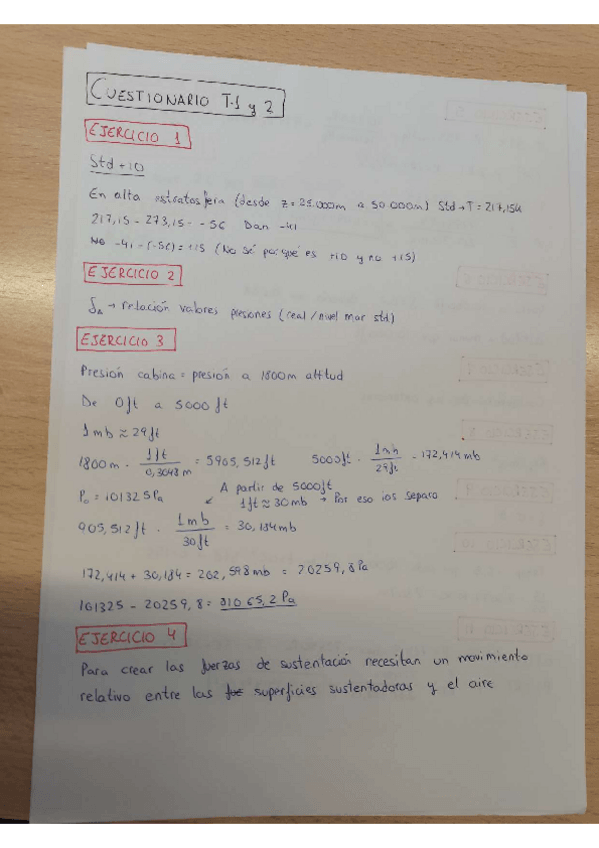 CUESTIONARIO T.1 y 2
EJERCICIO 1
Std + 10
En alta estratosfera (desde z = 25.000m a 50.000m) Std → T = 217,15K
217,15 - 273,15 = -56 Dan -41
No -41 - (-56) = +15 (No sé porqué es +10 y no +15)
EJERCICIO 2
→ relación valores presiones (real / nivel mar std)
EJERCICIO 3
Presión cabina = presión a 1800m altitud
De 0ft a 5000ft
1mb ≈ 29ft
1800m · 1ft / 0,3048m = 5905,512ft 5000ft · 1mb / 29ft = 172,414mb
P₀ = 101325Pa
A partir de 5000ft
1ft ≈ 30mb → Por eso los separo
905,512ft · 1mb / 30ft = 30,184mb
172,414 + 30,184 = 202,598mb = 20259,8Pa
101325 - 20259,8 = 81065,2Pa
EJERCICIO 4
Para crear las fuerzas de sustentación necesitan un movimiento
relativo entre las fue superficies sustentadoras y el aire